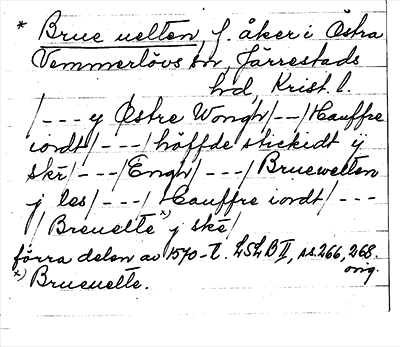 * Brue uelten, f. åker i Östra
Vemmerlövs sn, Järrestads
hd, Krist. l.
/---y Östre Wongh/--/Hauffre
iordt/---/höffde stickidt ÿ
skē/---/Engh/---/Bruewelten
j les/---/Hauffre iordt/---
/Breuelte x) j skē/
förra delen av 1570-t. LSLB II, ss. 266, 268.
orig.
x) Brueuelte.